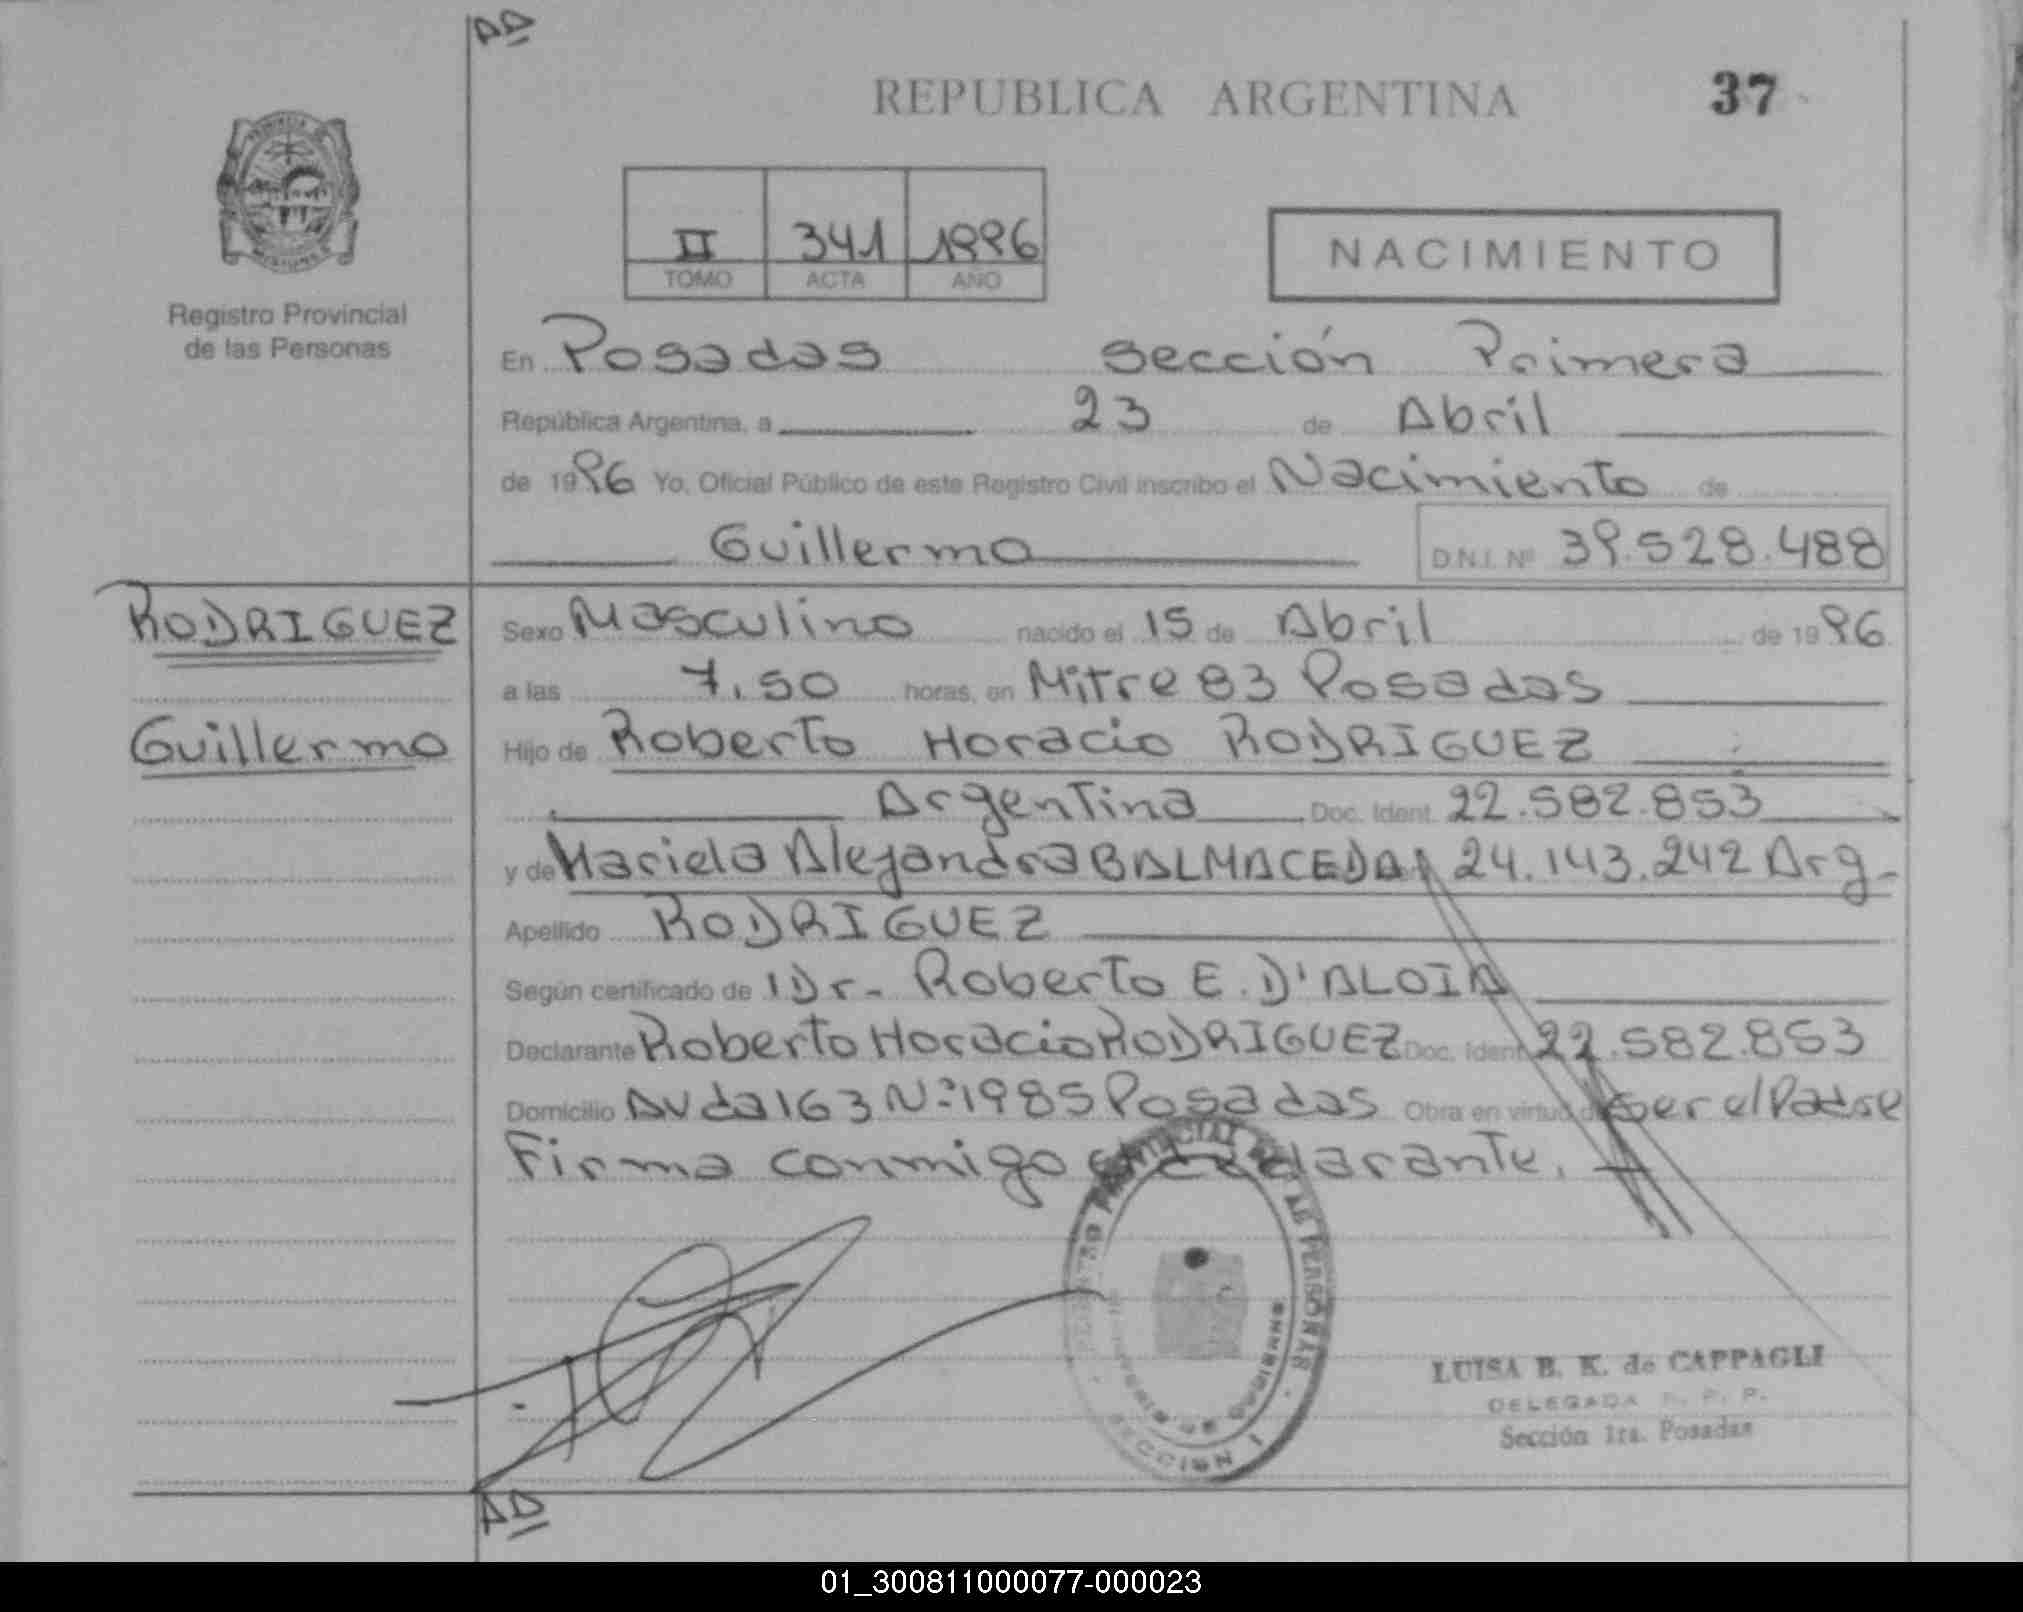 AD
REPUBLICA ARGENTINA 37
Registro Provincial
de las Personas
II 341 1996
TOMO ACTA AÑO
NACIMIENTO
En Posadas sección Primera
República Argentina, a 23 de Abril
de 1996 Yo, Oficial Público de este Registro Civil inscribo el Nacimiento de
Guillermo D.N.I. Nº 39.528.488
RODRIGUEZ
Guillermo
Sexo Masculino nacido el 15 de Abril de 1996
a las 7.50 horas, en Mitre 83 Posadas
Hijo de Roberto Horacio RODRIGUEZ
Argentina Doc. Ident. 22.582.853
y de Mariela Alejandra BALMACEDA 24.143.242 Arg-
Apellido RODRIGUEZ
Según certificado de Dr- Roberto E. D'ALOIA
Declarante Roberto Horacio RODRIGUEZ Doc. Ident 22.582.853
Domicilio AVda 163 Nº 1985 Posadas Obra en virtud de ser el Padre
Firma conmigo el declarante.
LUISA B. K. de CAPPAGLI
DELEGADA R. P. P.
Sección 1ra. Posadas
AD
01_300811000077-000023